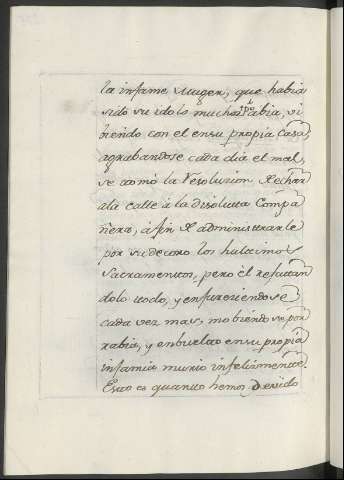 la infame Muger, que habia
sido su idolo muchos tpō abia, vi
biendo con el en su propia Casa,
agrabandose cada dia el mal,
se tomó la Resolucion, de echar
ala calle à la disolutta Compa
ñera, à fin de administrarle
por su decoro los hulttimos
Sacramenttos, pero èl refuttan
dolo ttodo, y enfureciendose
cada vez mas, mobiendose por
rabia, y enbuelto en su propia
infamia murio infelismente.
Esto es quantto hemos devido